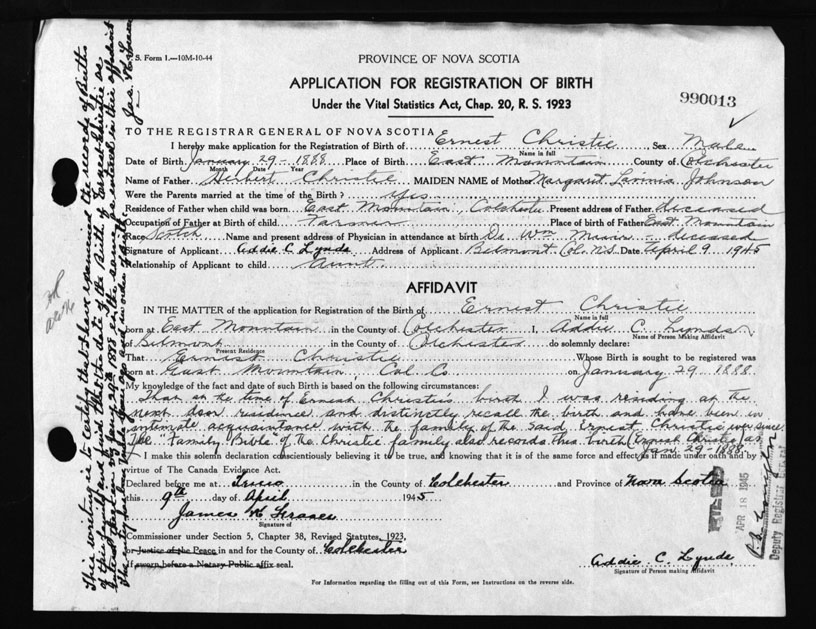 5. Form 1.—10M-10-44
PROVINCE OF NOVA SCOTIA
APPLICATION FOR REGISTRATION OF BIRTH
Under the Vital Statistics Act, Chap. 20, R. S. 1923
990013
TO THE REGISTRAR GENERAL OF NOVA SCOTIA
I hereby make application for the Registration of Birth of Ernest Christie Sex Male
Name in full
Date of Birth January 29 - 1888 Place of Birth East Mountain County of Colchester
Month Date Year
Name of Father Herbert Christie MAIDEN NAME of Mother Margaret Lavinia Johnson
Were the Parents married at the time of the Birth? Yes
Residence of Father when child was born East Mountain, Colchester Present address of Father deceased
Occupation of Father at Birth of child Farmer Place of birth of Father East Mountain
Race Scotch Name and present address of Physician in attendance at birth Dr. Wm - deceased
Signature of Applicant Addie C. Lynds Address of Applicant Belmont Col. N.S. Date April 9 1945
Relationship of Applicant to child Aunt.
AFFIDAVIT
IN THE MATTER of the application for Registration of the Birth of Ernest Christie
Name in full
born at East Mountain in the County of Colchester I, Addie C. Lynds
Name of Person Making Affidavit
of Belmont in the County of Colchester do solemnly declare:
Present Residence
That Ernest Christie Whose Birth is sought to be registered was
born at East Mountain, Col. Co. on January 29 1888
My knowledge of the fact and date of such Birth is based on the following circumstances:
That at the time of Ernest Christie's birth I was residing at the
next door residence and distinctly recall the birth and have been in
intimate acquaintance with the family of the said Ernest Christie ever since.
The "Family Bible" of the Christie family also records this birth (Ernest Christie) as
Jan. 29 - 1888.
I make this solemn declaration conscientiously believing it to be true, and knowing that it is of the same force and effect as if made under oath and by
virtue of The Canada Evidence Act.
Declared before me at Truro in the County of Colchester and Province of Nova Scotia
this 9th day of April 1945
James H Fraser
Signature of
Commissioner under Section 5, Chapter 38, Revised Statutes, 1923,
or Justice of the Peace in and for the County of Colchester
If sworn before a Notary Public affix seal.
Addie C. Lynds
Signature of Person making Affidavit
For Information regarding the filling out of this Form, see Instructions on the reverse side.
This writing is to certify that I have examined the records of Birth
of this family and that the date of the Birth of Ernest Christie as
January 29th 1888 is the same as entered in this affidavit
the entry has been made years ago and in order of birth
Jas. H. Fraser
APR 18 1945
Deputy Registrar